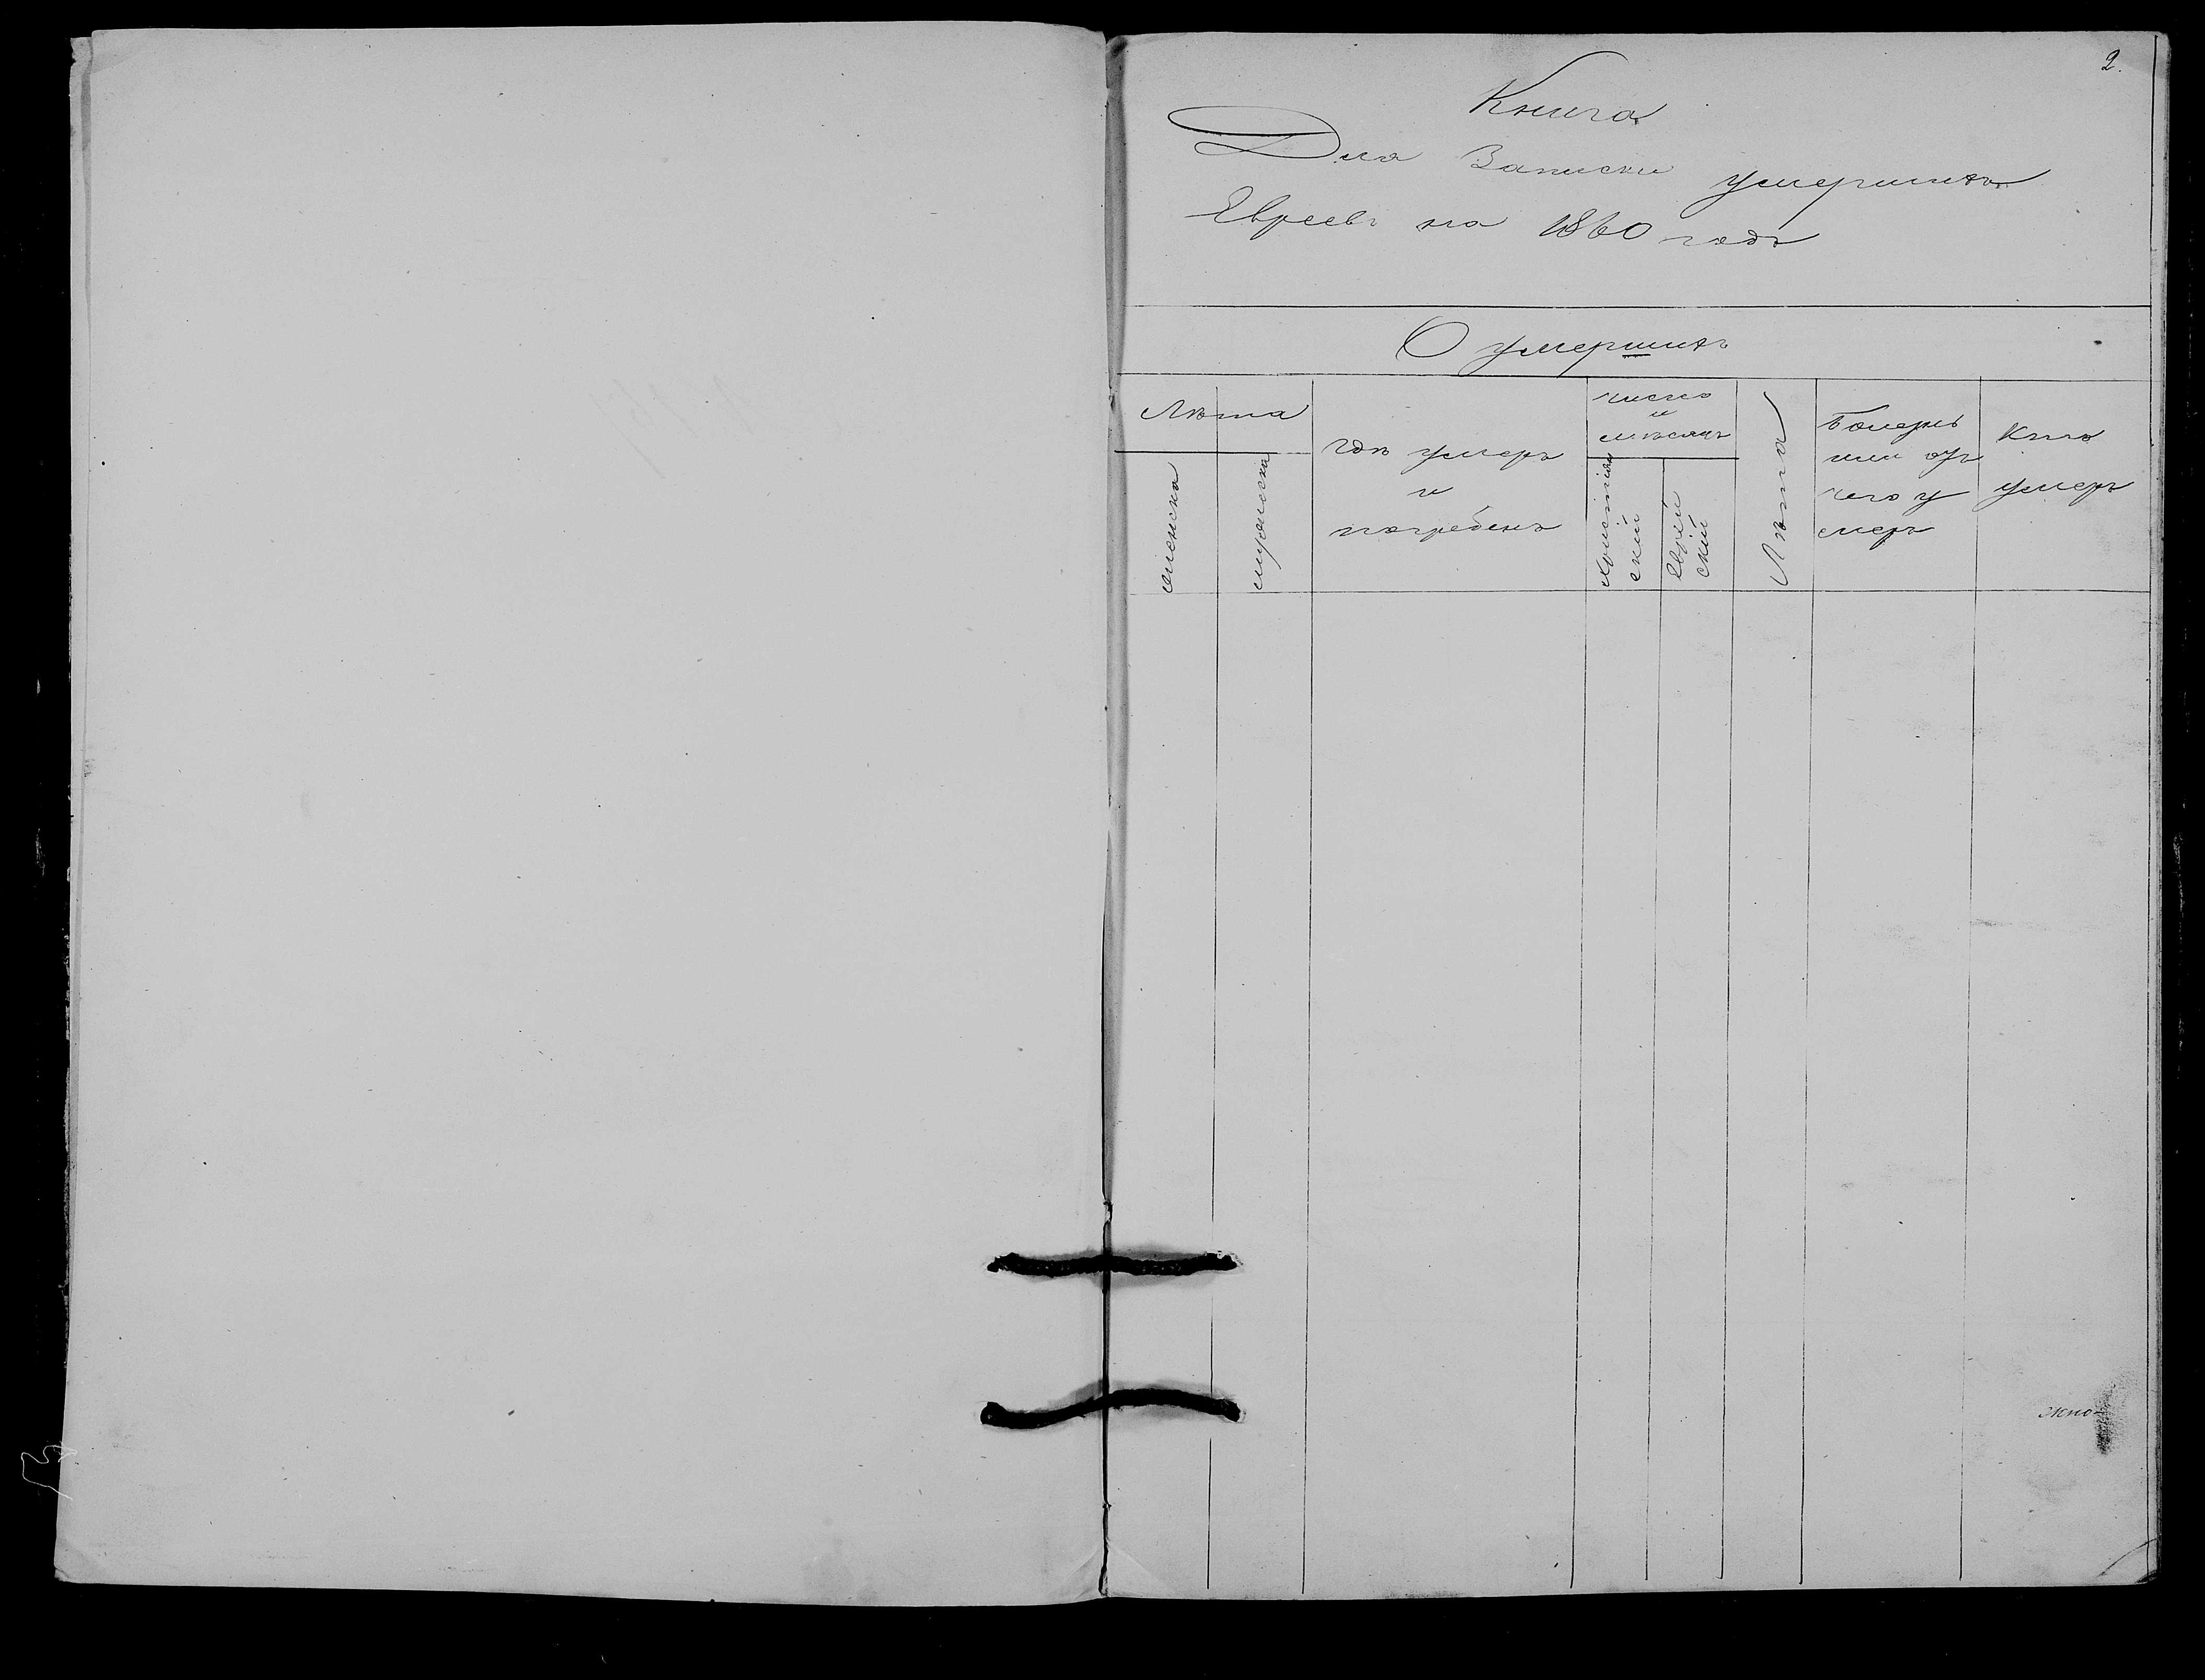 2.
Книга
Для Записки умершихъ
Евреевъ на 1860 годъ
О умершихъ
Лѣта
женска
мужеска
гдѣ умеръ
и
погребенъ
число
и
мѣсяцъ
Христіан
скій
Еврей
скій
Лѣта
Болезнь
или отъ
чего у
меръ
Кто
умеръ